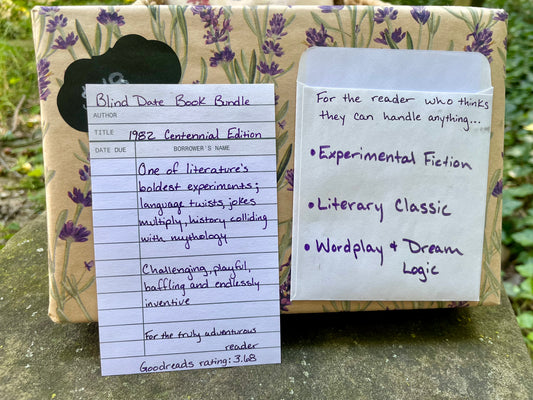 Blind Date Book Bundle
AUTHOR
TITLE 1982 Centennial Edition
DATE DUE BORROWER'S NAME
One of literature's
boldest experiments;
language twists, jokes
multiply, history colliding
with mythology
Challenging, playful,
baffling and endlessly
inventive
For the truly adventurous
reader
Goodreads rating: 3.68
For the reader who thinks
they can handle anything...
• Experimental Fiction
• Literary Classic
• Wordplay + Dream
Logic